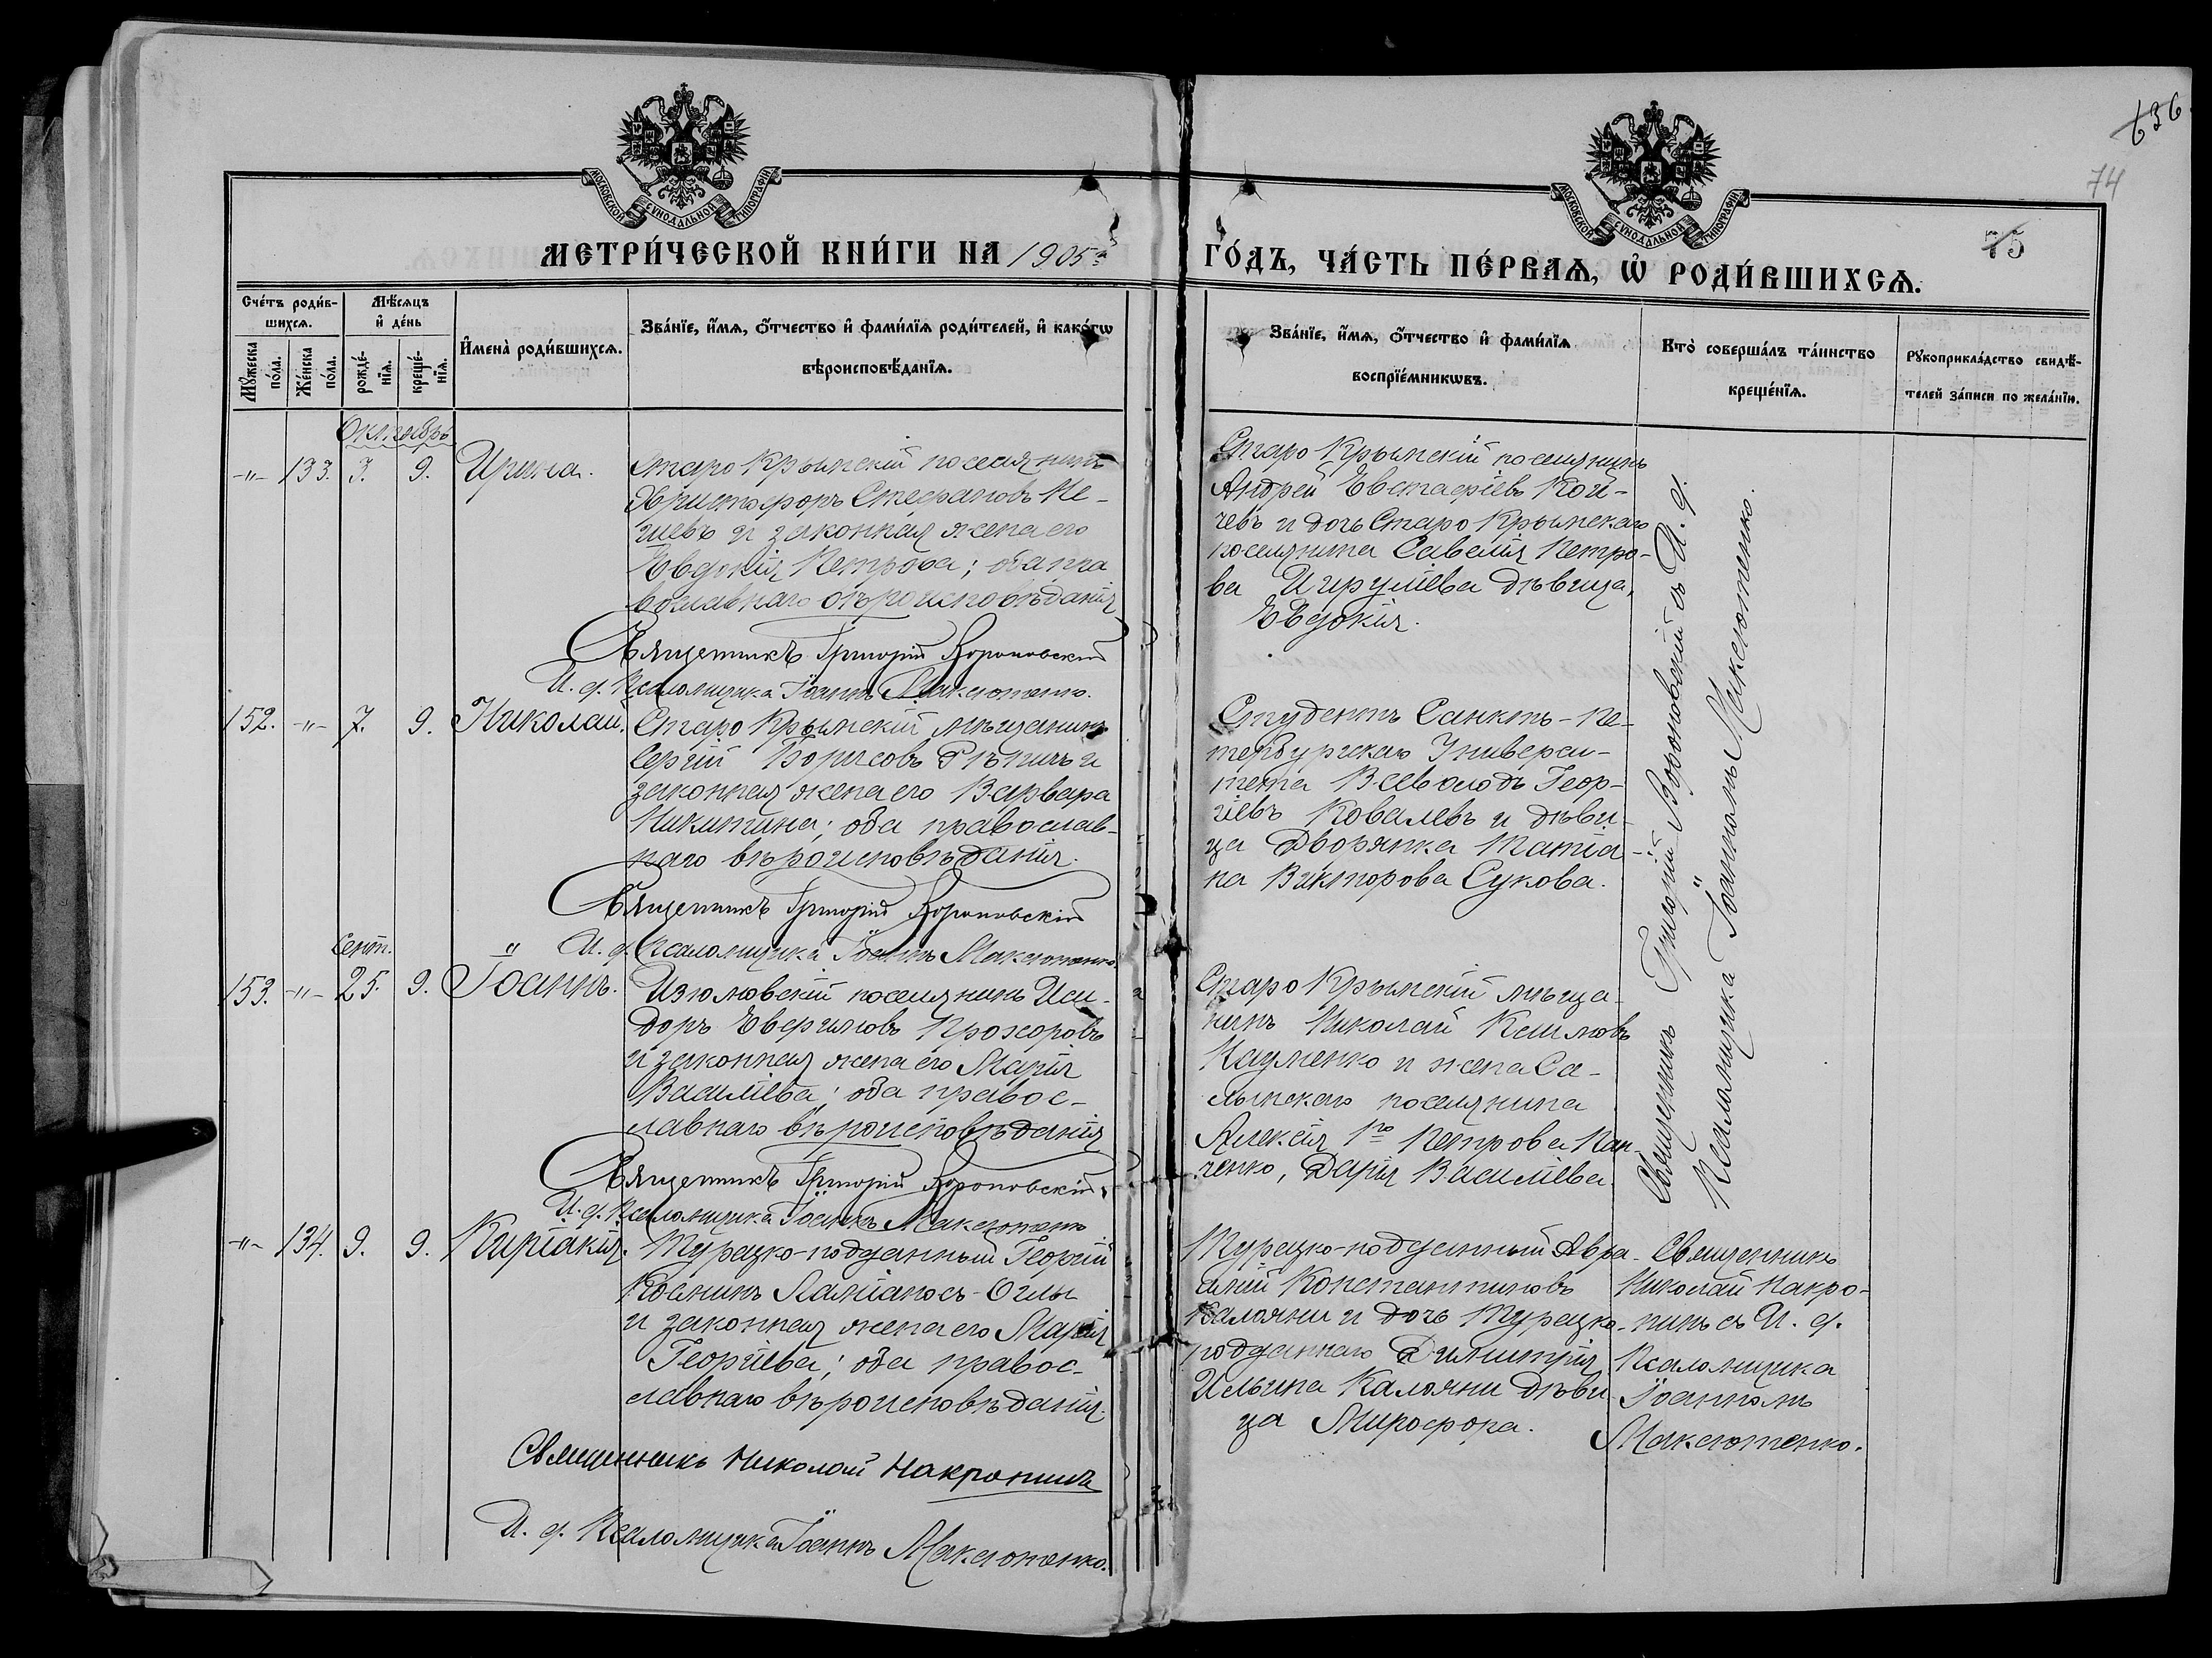 636
74
75
МОСКОВСКОЙ СѴНОДАЛЬНОЙ ТИПОГРАФІИ
МОСКОВСКОЙ СѴНОДАЛЬНОЙ ТИПОГРАФІИ
МЕТРИ́ЧЕСКОЙ КНИ́ГИ НА 1905й
ГО́ДЪ, ЧА́СТЬ ПЕ́РВАѦ, Ѡ҆ РОДИ́ВШИХСѦ.
Сче́тъ роди́в-
шихсѧ.
Мѣ́сѧцъ
и҆ де́нь
Мꙋ́жеска
по́ла.
Же́нска
по́ла.
рожде́-
нїѧ.
креще́-
нїѧ.
И҆мена̀ роди́вшихсѧ.
Зва́нїе, и҆́мѧ, ѻ҆́тчество и҆ фами́лїѧ роди́телей, и҆ како́гѡ
вѣроисповѣ́данїѧ.
Зва́нїе, и҆́мѧ, ѻ҆́тчество и҆ фами́лїѧ
воспрїе́мникѡвъ.
Кто̀ соверша́лъ та́инство
креще́нїѧ.
Рꙋкоприкла́дство свидѣ́-
телей за́писи по жела́нїю.
Октябрь
-"- 133. 3. 9. Ирина.
Старо Крымскій поселянинъ
Христофоръ Стефановъ
и законная жена его
Евдокія Петрова; оба пра
вославнаго вѣроисповѣданія
Священникъ Григорій Вороновскій
И. д. Псаломщика Іоаннъ Максютенко.
Старо Крымскій поселянинъ
Андрей Евстафіевъ Кой-
чевъ и дочь Старо Крымскаго
поселянина Савелія Петро-
ва дѣвица,
Евдокія.
Священникъ Григорій Вороновскій съ И. д.
Псаломщика Іоанномъ Максютенко.
152. -"- 7. 9. Николай.
Старо Крымскій мѣщанинъ
Сергій Борисовъ Рѣпичъ и
законная жена его Варвара
Никитина; оба православ-
наго вѣроисповѣданія.
Священникъ Григорій Вороновскій
И. д. Псаломщика Іоаннъ Максютенко.
Студентъ Санктъ-Пе-
тербургскаго Универси-
тета Всеволодъ Геор-
гіевъ Ковалевъ и дѣви-
ца Дворянка Татіа-
на Викторова Сукова.
Сент.
153. -"- 25. 9. Іоаннъ.
Изюмовскій поселянинъ Иси-
доръ Прохоровъ
и законная жена его Марія
Василіева; оба правос-
лавнаго вѣроисповѣданія
Священникъ Григорій Вороновскій
И. д. Псаломщика Іоаннъ Максютенко
Старо Крымскій мѣща-
нинъ Николай Климовъ
Науменко и жена Са-
лынскаго поселянина
Алексія 1го Петрова Пан-
ченко, Дарія Василіева.
-"- 134. 9. 9. Киріакія.
Турецко-подданный Георгій
Ламіаносъ-Оглы
и законная жена его Марія
Георгіева; оба правос-
лавнаго вѣроисповѣданія.
Священникъ Николай Накропинъ
И. д. Псаломщика Іоаннъ Максютенко.
Турецко-подданный Авра-
амій Константиновъ
Калояни и дочь Турецко-
подданнаго Димитрія
Ильина Калояни дѣви-
ца Мирофора.
Священникъ
Николай Накро-
пинъ съ И. д.
Псаломщика
Іоанномъ
Максютенко.